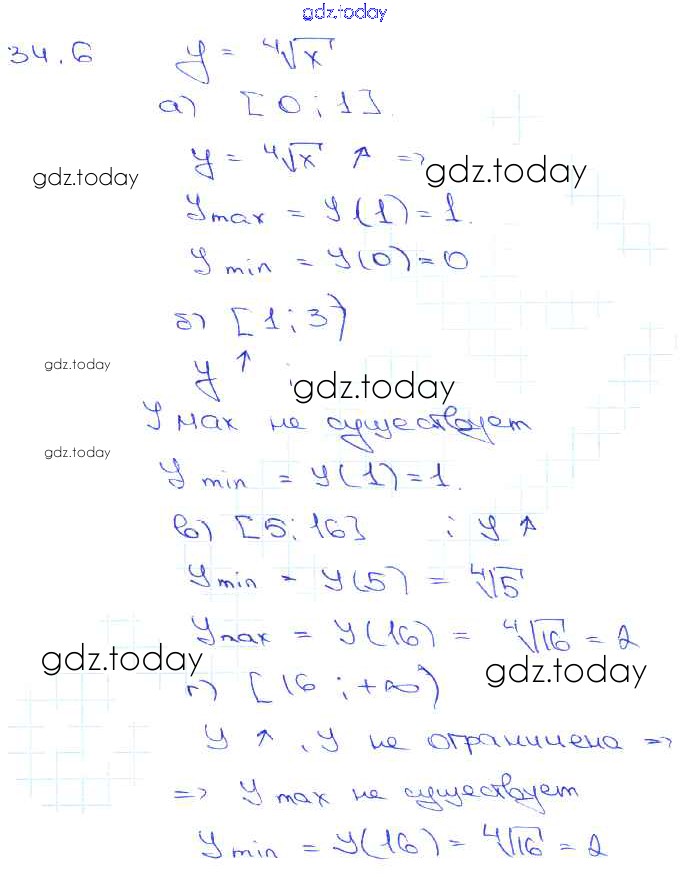 gdz.today
34.6 y = ⁴√x
а) [0; 1].
y = ⁴√x ↑ =>
gdz.today gdz.today
y max = y(1) = 1.
y min = y(0) = 0
б) [1; 3)
gdz.today y ↑ ;
gdz.today
y мах не существует
gdz.today
y min = y(1) = 1.
в) [5; 16] ; y ↑
y min = y(5) = ⁴√5
y max = y(16) = ⁴√16 = 2
gdz.today gdz.today
г) [16; +∞)
y ↑, y не ограничена =>
=> y max не существует
y min = y(16) = ⁴√16 = 2